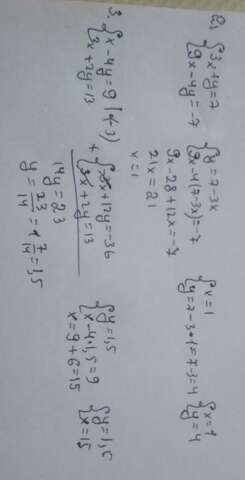 2. {3x+y=7
{9x-4y=-7
{y=7-3x
{9x-4(7-3x)=-7
9x-28+12x=-7
21x=21
x=1
{x=1
{y=7-3•1=7-3=4
{x=1
{y=4
3. {x-4y=9 |(-3)
{3x+2y=13
+ {-3x+12y=-36
{3x+2y=13
14y=23
y=23/14=1 7/14=1,5
{y=1,5
{x-4•1,5=9
x=9+6=15
{y=1,5
{x=15